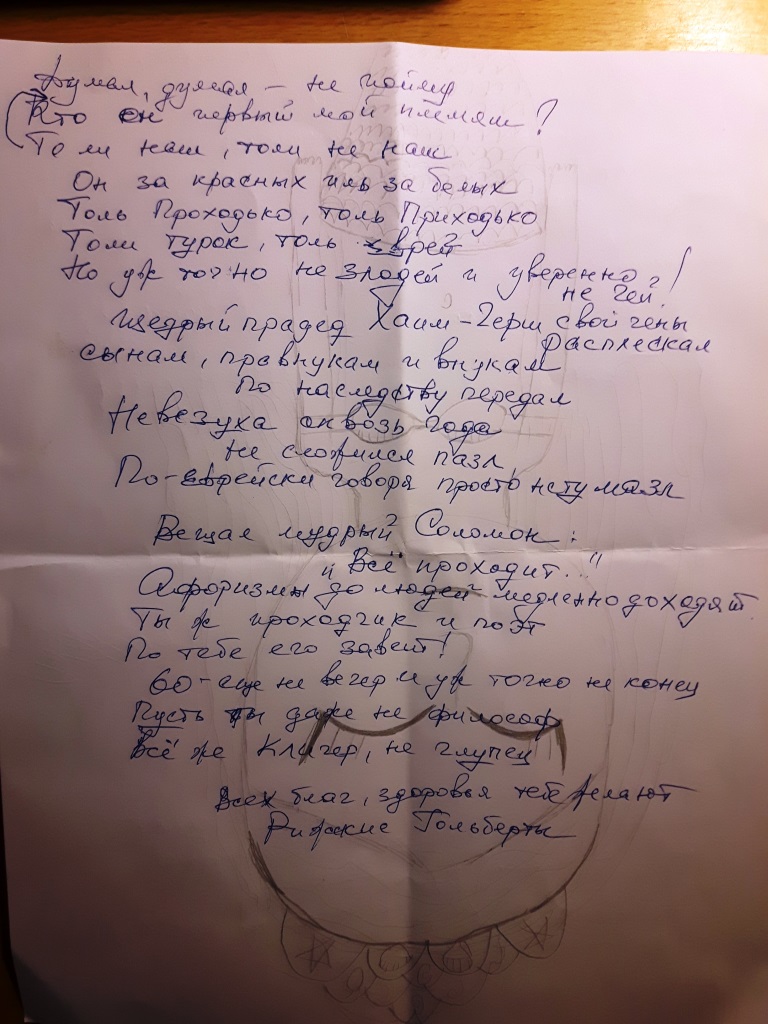 Думал, думал – не пойму
Кто он первый мой племяш?
То ли наш, толи не наш
Он за красных иль за белых
Толь Проходько, толь Приходько
Толи турок, толь еврей
Но уж точно не злодей и уверенно
не гей!
Щедрый прадед Хаим-Герш свой гены
расплескал
сынам, правнукам и внукам
По наследству передал
Невезуха сквозь года
не сложился пазл
По-еврейски говоря просто нету мазл
Вещал мудрый Соломон:
"Всё проходит..."
Афоризмы до людей медленно доходят
Ты ж проходчик и поэт
По тебе его завет!
60 - еще не вечер и уж точно не конец
Пусть ты даже не философ
Всё же Клигер, не глупец
Всех благ, здоровья тебе желают
Рижские Гольберты